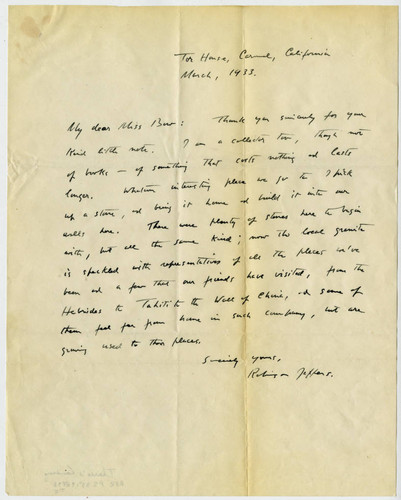 Tor House, Carmel, California
March, 1933.
My dear Miss : Thank you sincerely for your
kind little note. I am a collector too, though not
of books — of something that costs nothing and lasts
longer. Whatever interesting place we go to I pick
up a stone, and bring it home and build it into our
walls here. There were plenty of stones here to begin
with, but all the same kind; now the local granite
is specked with representatives of all the places we've
been and a few that our friends have visited, from the
Hebrides to Tahiti to the Wall of China, and some of
them feel far from home in such company, but are
growing used to their places.
Sincerely yours,
Robinson Jeffers.